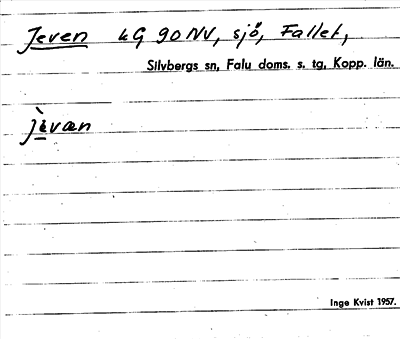 Jeven 4G 90 NV, sjö, Fallet,
Silvbergs sn, Falu doms. s. tg, Kopp. län.
Inge Kvist 1957.